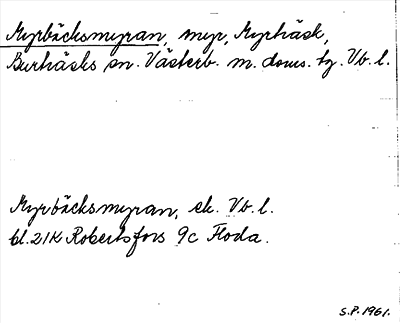 Myrbäcksmyran, myr, Myrträsk,
Burträsks sn. Västerb. m. doms. tg. Vb. l.
Myrbäcksmyran, ek. Vb. l.
bl. 21K Robertsfors 9c Floda.
S.P. 1961.